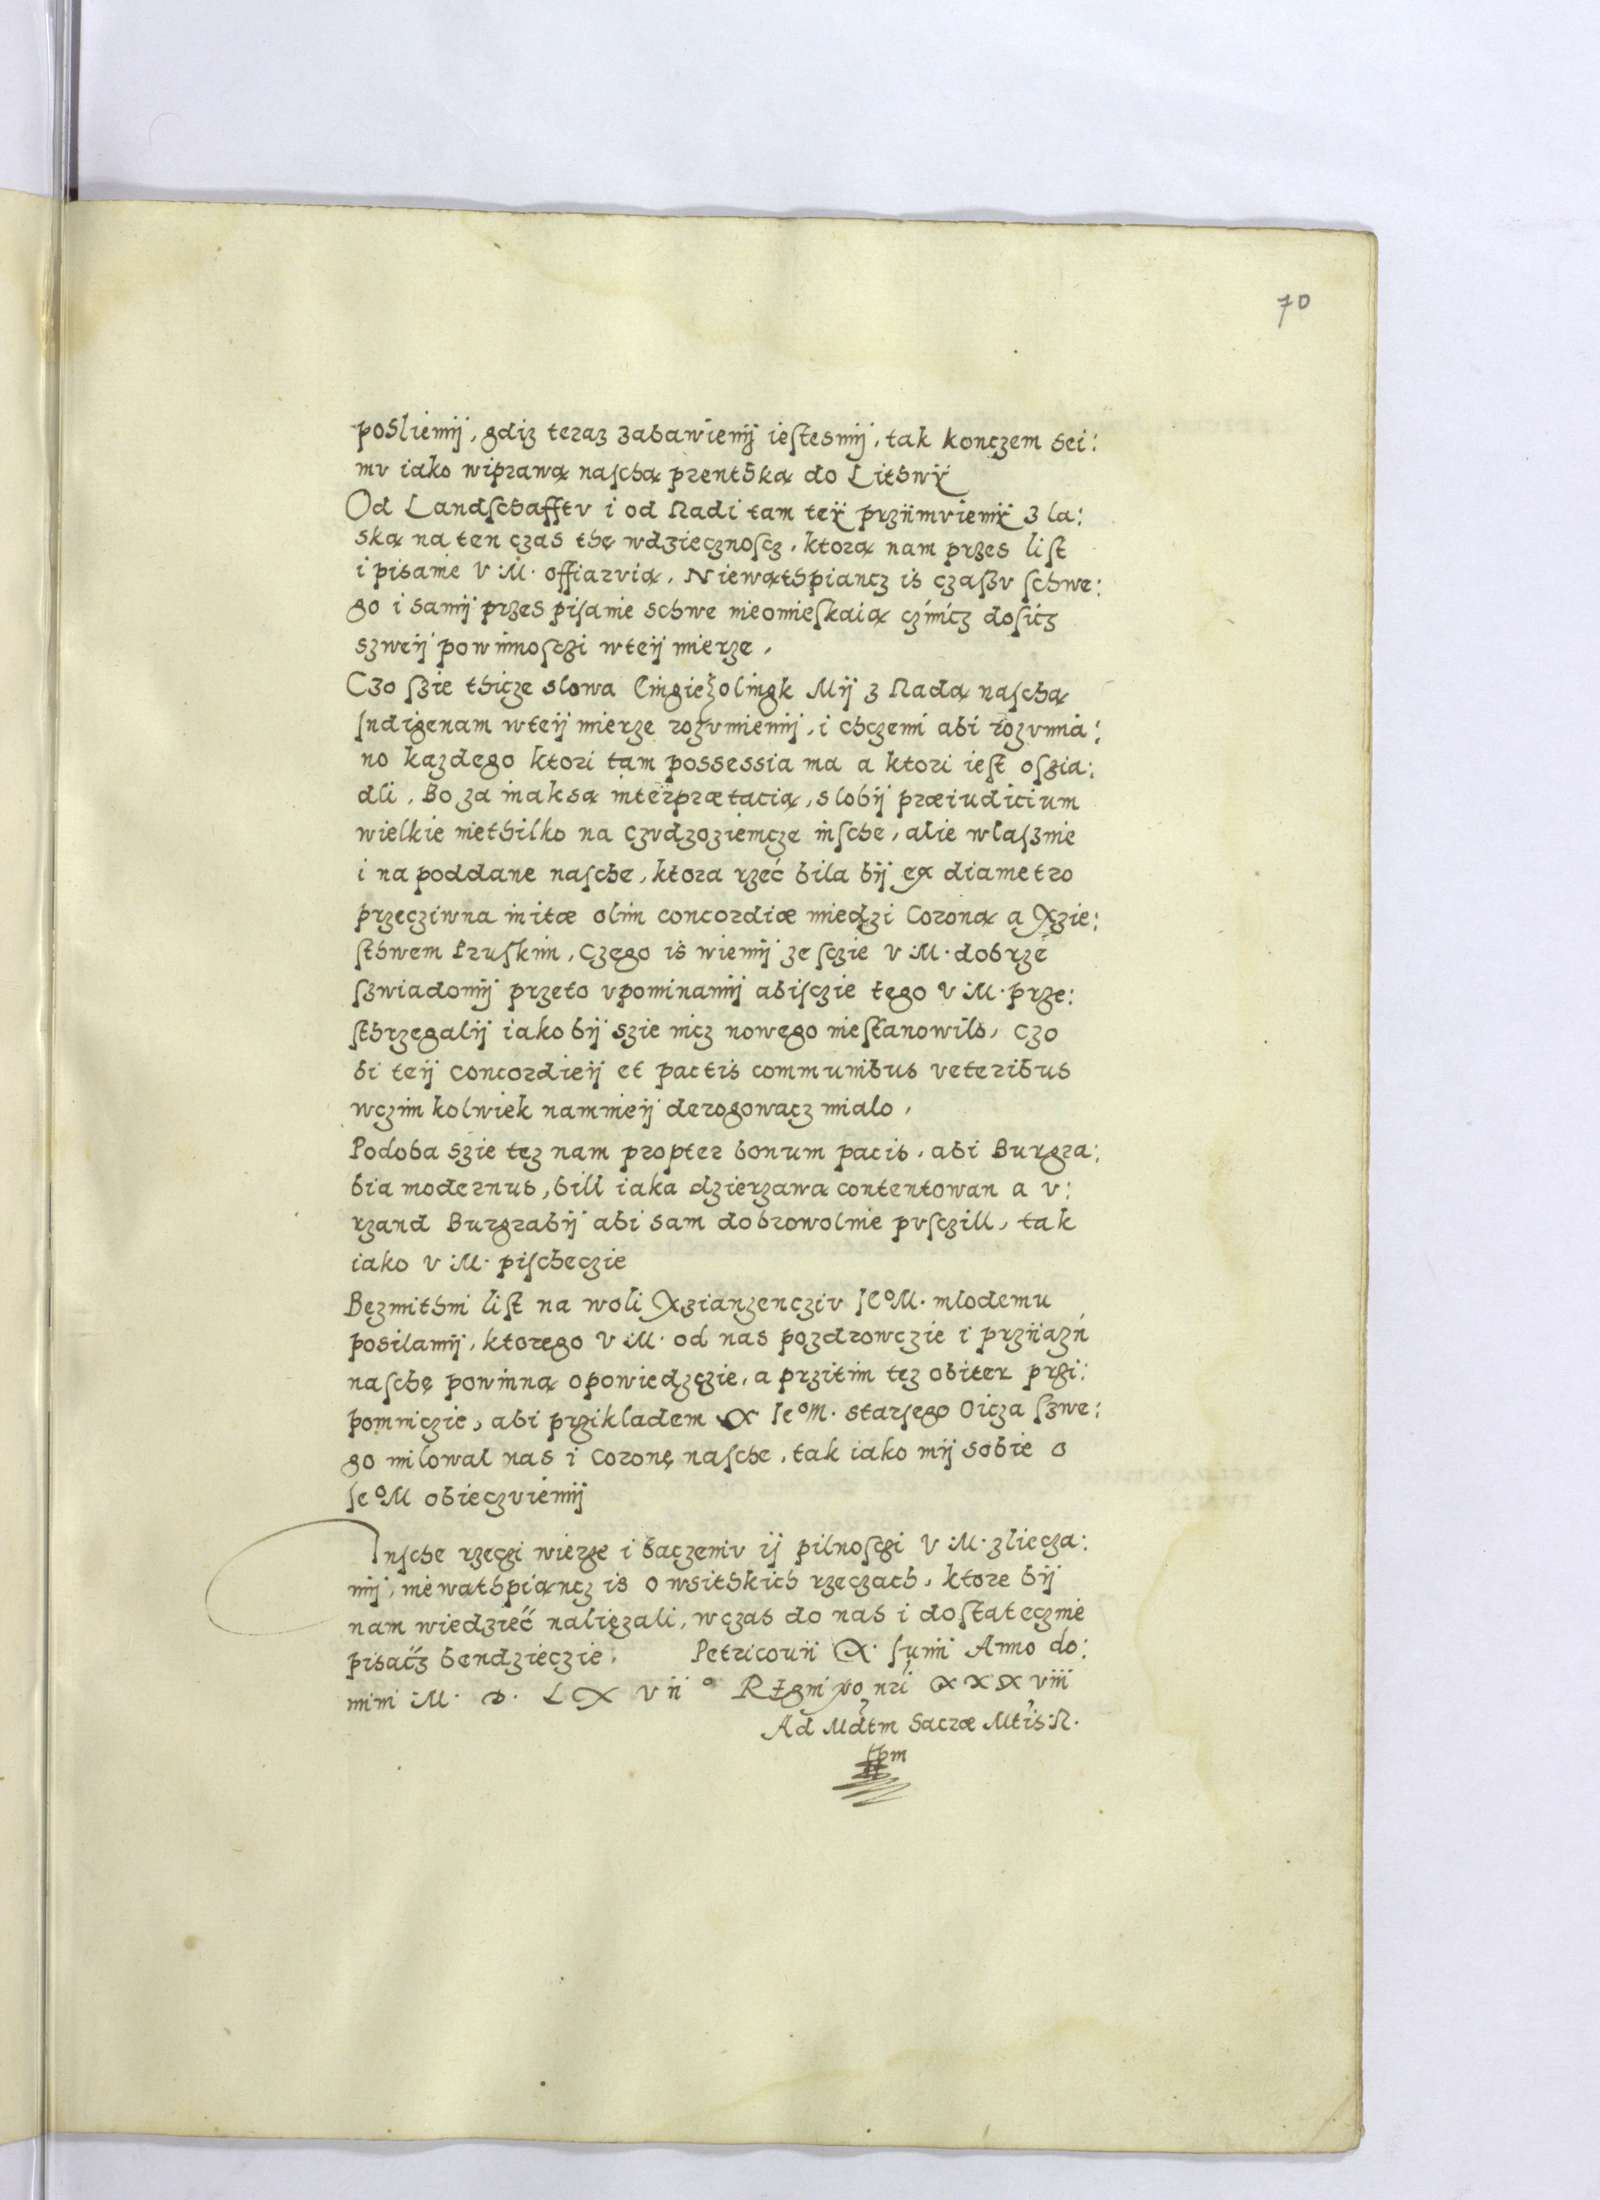 70
posliemÿ, gdiz teraz zabawienÿ iestesmÿ, tak konczem sei:
mv iako wiprawą naschą prentską do Lithwÿ
Od Landschafftv i od Radi tam teÿ przÿmviemÿ z la:
ską na ten czas thę wdziecznoscz, ktorą nam przes list
i pisanie V.M. offiarvią, Niewąthpiancz is czaszv schwe:
go i samÿ przes pisanie schwe nieomieskaią czinicz dosicz
szweÿ powinnosczi wteÿ mierze,
Czo szie thicze slowa Mÿ z Radą naschą
Indigenam wteÿ mierze rozvmiemÿ, i chczemi abi rozvmia:
no kazdego ktori tam possessia ma a ktori iest oszia:
dli, Bo za inaksą interprætacią, slobÿ præiudicium
wielkie niethilko na czvdzoziemcze insche, alie wlasznie
i na poddane nasche, ktora rzeć bila bÿ ex diametro
przecziwna initæ olim concordiæ miedzi Coroną a Xzie:
sthwem Pruskim, Czego is wiemÿ ze sczie V.M. dobrze
szwiadomÿ przeto vpominamÿ abisczie tego V.M. prze:
sthrzegalÿ iako bÿ szie nicz nowego niestanowilo, Czo
bi teÿ concordieÿ et pactis communibus veteribus
wczim kolwiek namnieÿ derogowacz mialo,
Podoba szie tez nam propter bonum pacis, abi Burgra:
bia modernus, bill iaka dzierzawa contentowan a v:
rzand Burgrabÿ abi sam dobrowolnie pvsczill, tak
iako V.M. pischeczie
Bezmithni list na woli Xzianzencziv Ie°M. mlodemu
posilamÿ, ktorego V.M. od nas pozdrowczie i przÿazń
naschę powinną opowiedzczie, a przitim tez obiter przi:
pomniczie, abi przikladem X Ie°M. starsego Oicza szwe:
go milowal nas i Coronę nasche, tak iako mÿ sobie o
Ie°M obieczviemÿ
Insche rzeczi wierze i baczeniv ÿ pilnosczi V.M. zliecza:
mÿ, niewathpiancz is o wsithkich rzeczach, ktore bÿ
nam wiedzieć naliezali, wczas do nas i dostatecznie
pisacz bendzieczie, Petricouiÿ X. Iunÿ Anno do:
mini M. D. L X Vii° Regni vo nri X X X viii
Ad Mdtm Sacræ Mtis R.
tpm